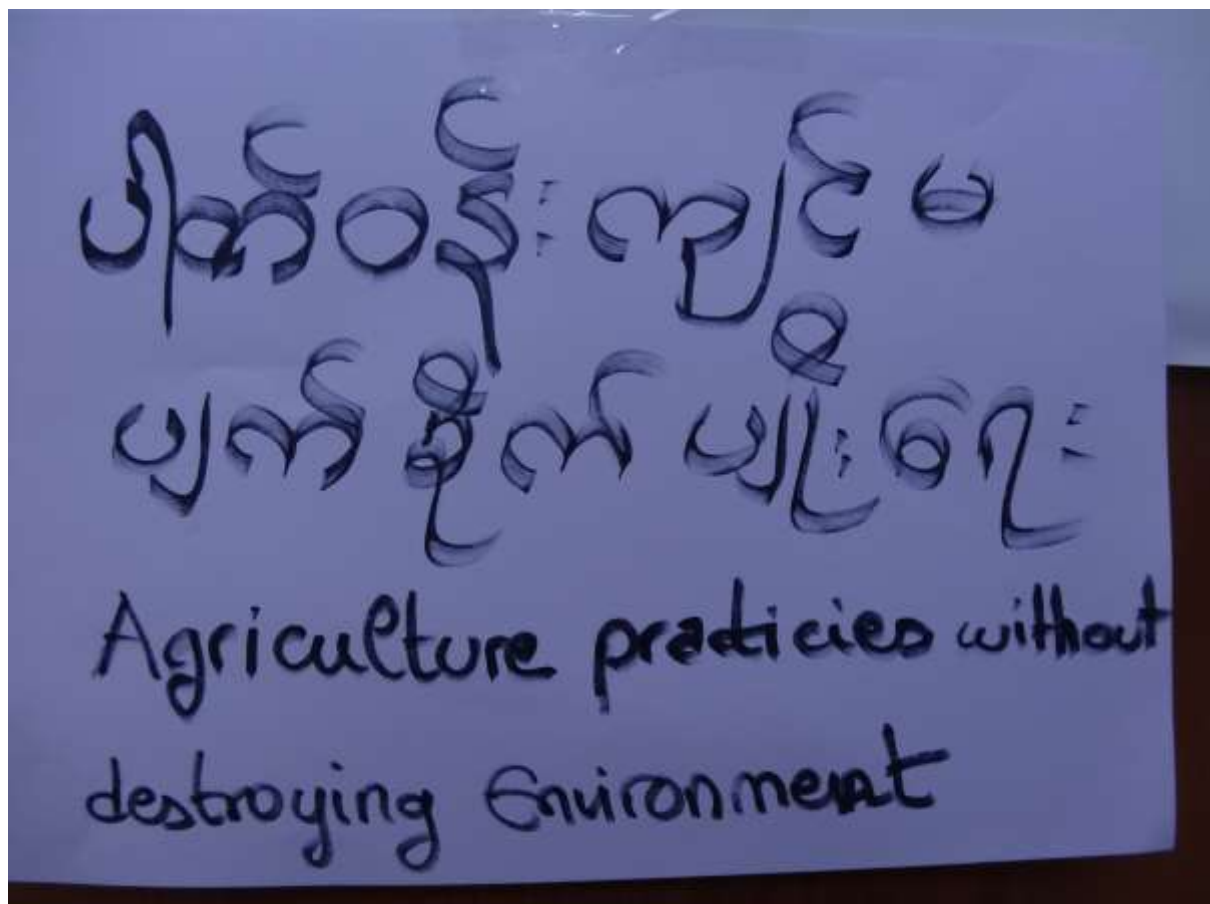 ပါတ်ဝန်းကျင်မ
ပျက်စိုက်ပျိုးရေး
Agriculture practicies without
destroying Environment